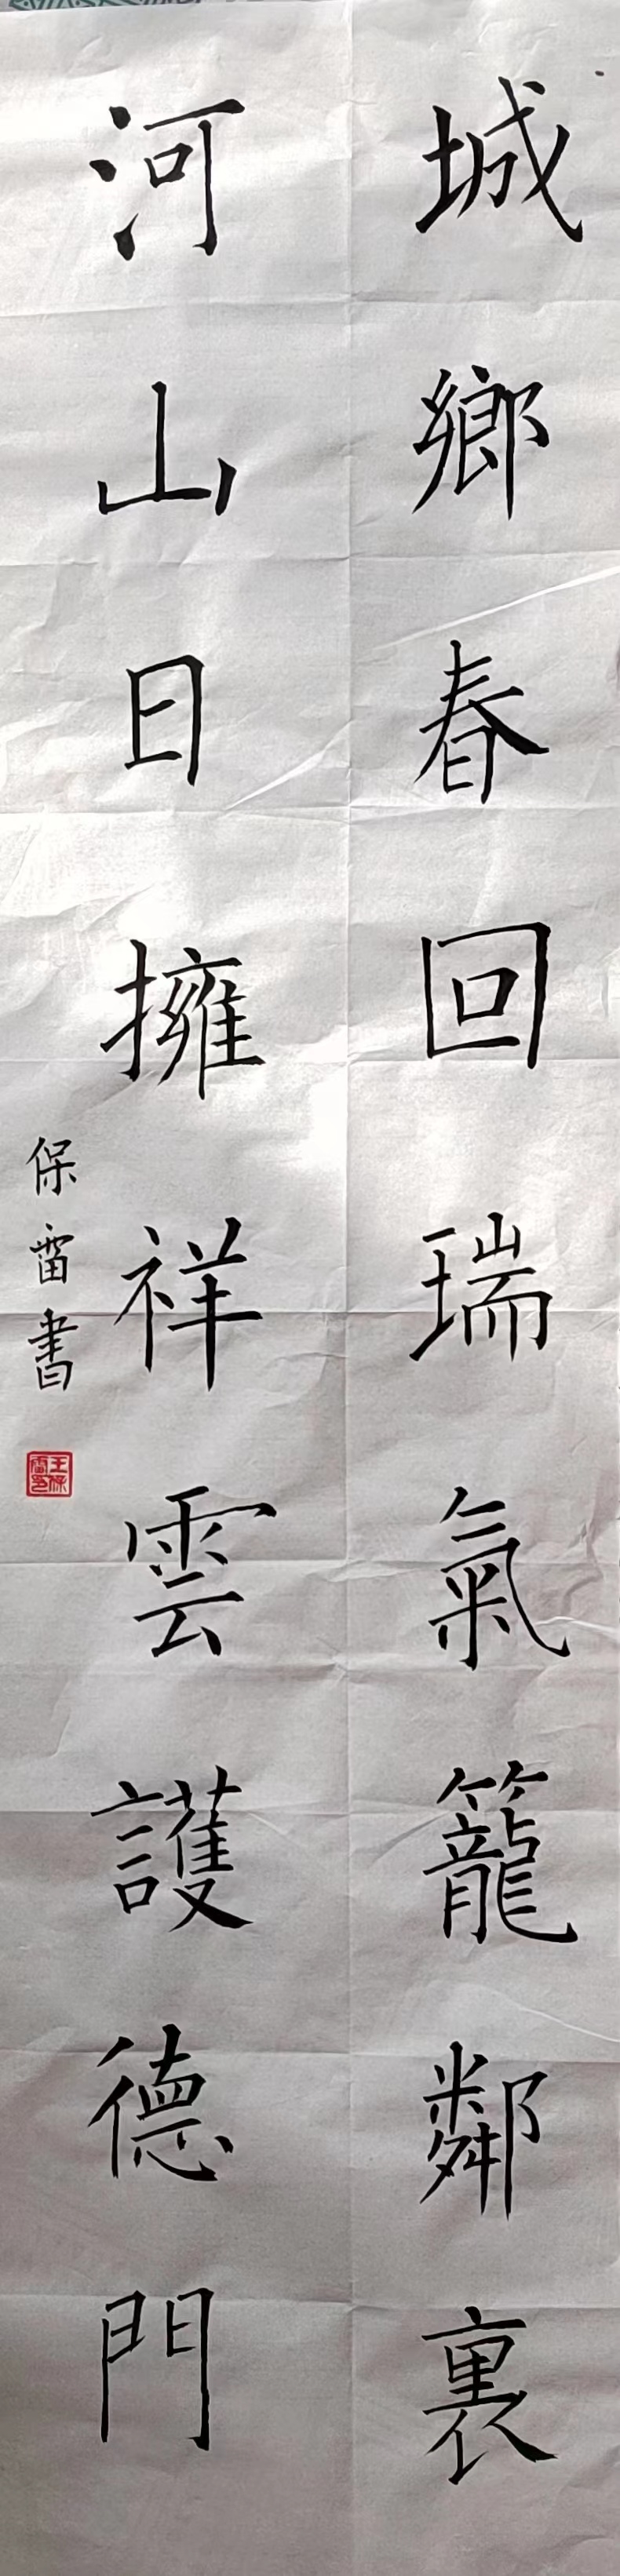 城鄉春回瑞氣籠鄰裏
河山日擁祥雲護德門
保雷書